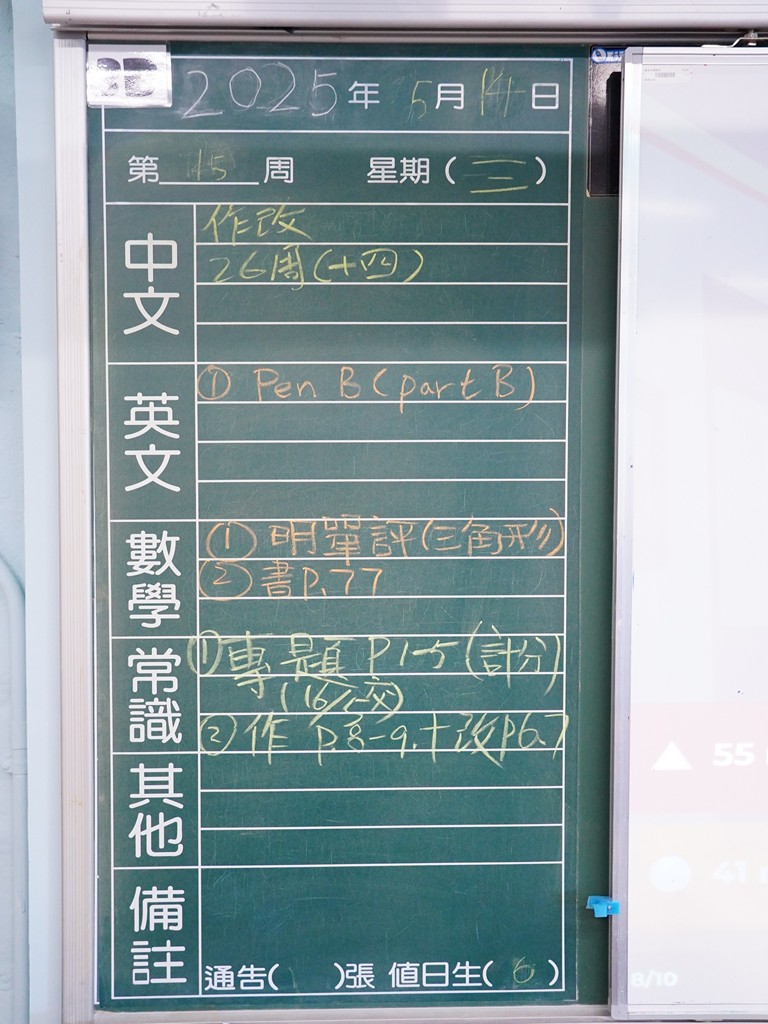 2025年 5月 14日
第 15 周 星期(三)
中文
作改
26周(十四)
英文
① Pen B (part B)
數學
① 明單評(三角形)
② 書P.77
常識
① 專題 P1-5 (計分)
(16/5交)
② 作 P.8-9.+改P6.7
其他
備註
通告( )張 值日生( 6 )
55
41
8/10